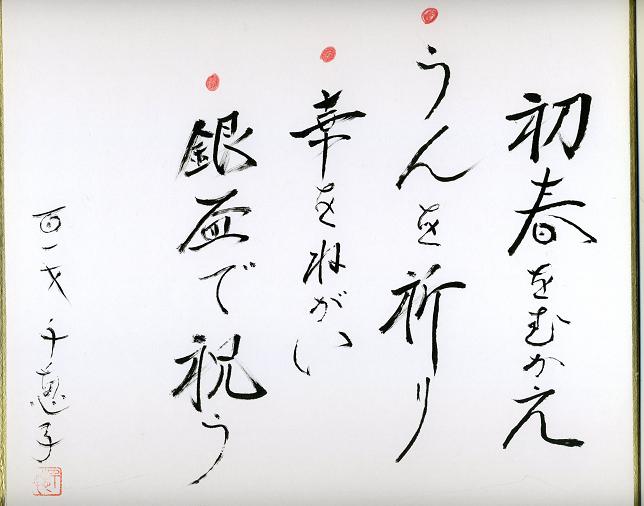 初春をむかえ
うんを祈り
幸をねがい
銀盃で祝う
百一才 千恵子